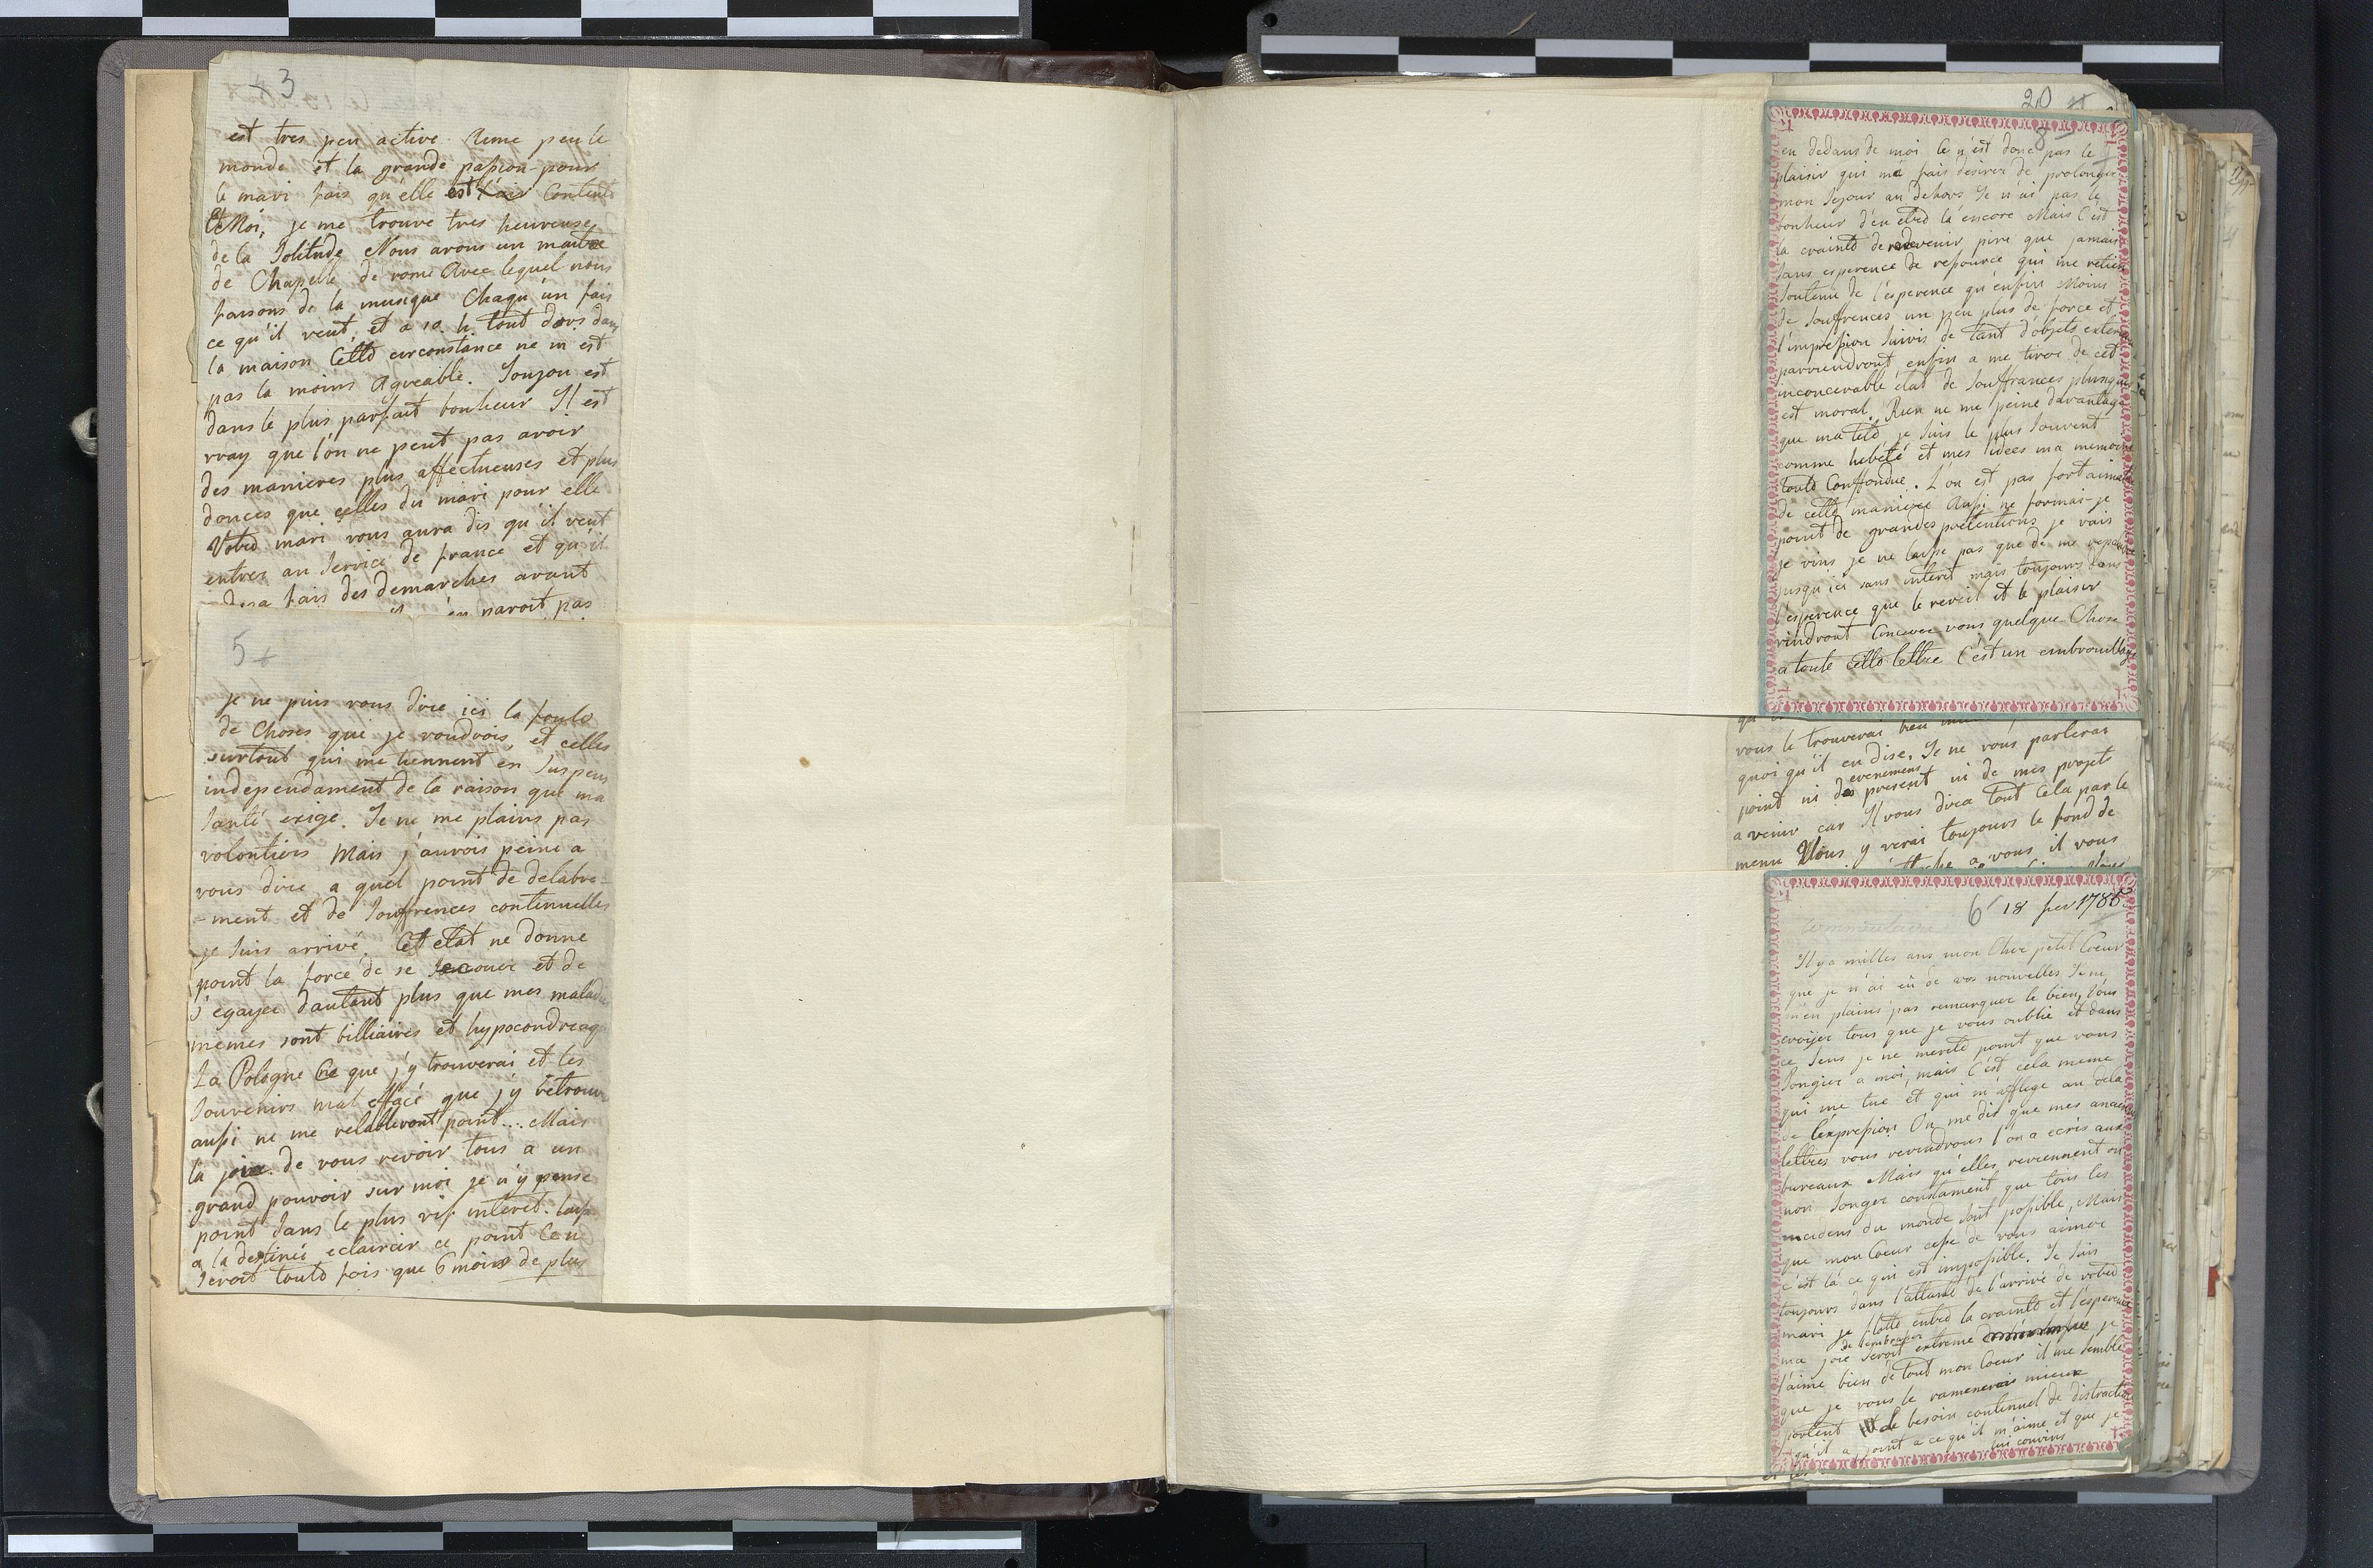 3
est tres peu active. Aime peu le
monde et la grande passion pour
le mari fais qu'elle est Contente
Et Moi, je me trouve tres heureuse
de la Solitude Nous avons un maitre
de Chapelle de rome Avec lequel nous
faisons de la musique Chaqu'un fais
ce qu'il veut, et a 10. h. tout dors dans
la maison Cette circonstance ne m'est
pas la moins Agreable. Joujou est
dans le plus parfait bonheur Il est
vray que l'on ne peut pas avoir
des manieres plus affectueuses et plus
douces que celles du mari pour elle
Votre mari vous aura dis qu'il veut
entrer au Service de france et qu'il
fais des demarches avant
paroit pas
5
je ne puis vous dire ici la foule
de Choses que je voudrois, et celles
surtout qui me tiennent en Suspens
independament de la raison que ma
Santé exige. Je ne me plains pas
volontiers Mais j'aurois peine a
vous dire a quel point de delabre-
-ment et de Souffrences continuelles
je Suis arrivé. Cet etat ne donne
point la force de se Secouer et de
s'egayer dautant plus que mes maladies
memes sont billiaires et hypocondriaq
La Pologne Ce que j'y trouverai et les
Souvenirs mal effacé que j'y retrouve
aussi ne me relableront point... Mais
la joie de vous revoir tous a un
grand pouvoir sur moi je n'y pense
point Sans le plus vif interet. laiss
a la destinée eclaircir ce point Ce ne
Seroit toute fois que 6 mois de plus
20
8
en dedans de moi Ce n'est donc pas le
plaisir qui me fais desirer de prolonger
mon Sejour au dehors Je n'ai pas le
bonheur d'en etre la encore Mais C'est
la crainte de redevenir pire que jamais
Sans esperence de ressource qui me retien
Soutenu de l'esperence qu'enfin Moins
de Souffrences un peu plus de force et
l'impression Suivis de Tant d'objets extern
parviendront enfin a me tirer de cet
inconcevable etat de Souffrances plusque
est moral. Rien ne me peine davantage
que ma tete, je Suis le plus Souvent
comme hebeté et mes idees ma memoire
toute Conffondue. L'on est pas fort aimable
de cette maniere Aussi ne formai-je
point de grandes pretentions je vais
je vins je ne laisse pas que de me repandre
jusqu'ici sans interet mais toujours dans
l'esperence que le reveil et le plaisir
viendront Concevez vous quelque Chose
a toute Cette lettre C'est un embrouillage
vous le trouverai bien
quoi qu'il en dise. Je ne vous parlerai
point ni des evenemens present ni de mes projets
a venir car Il vous dira tout Cela par le
menu Vous y verai toujours le fond de
a vous il vous
6 18 fev 1786
Il y a milles ans mon Cher petit Coeur
que je n'ai eu de vos nouvelles Je ne
m'en plains pas remarquer le bien, Vous
croijer tous que je vous oublie et dans
ce Sens je ne merite point que vous
Songier a moi, mais C'est cela meme
qui me tue et qui m'afflige au dela
de l'expression On me dis que mes anciene
lettres vous reviendrons l'on a ecris aux
bureaux Mais qu'elles reviennent ou
non Songer constament que tous les
incidens du monde Sont possible, Mais
que mon Coeur cesse de vous aimer
c'est la ce qui est impossible. Je Suis
toujours dans l'attante de l'arrivé de votre
mari je flotte entre la crainte et l'esperence
ma joie de l'embrasser Seroit extreme je
l'aime bien de tout mon Coeur il me Semble
que je vous le ramenerai mieux
portent le besoin continuel de distraction
qu'il a joint a ce qu'il m'aime et que je
lui convins